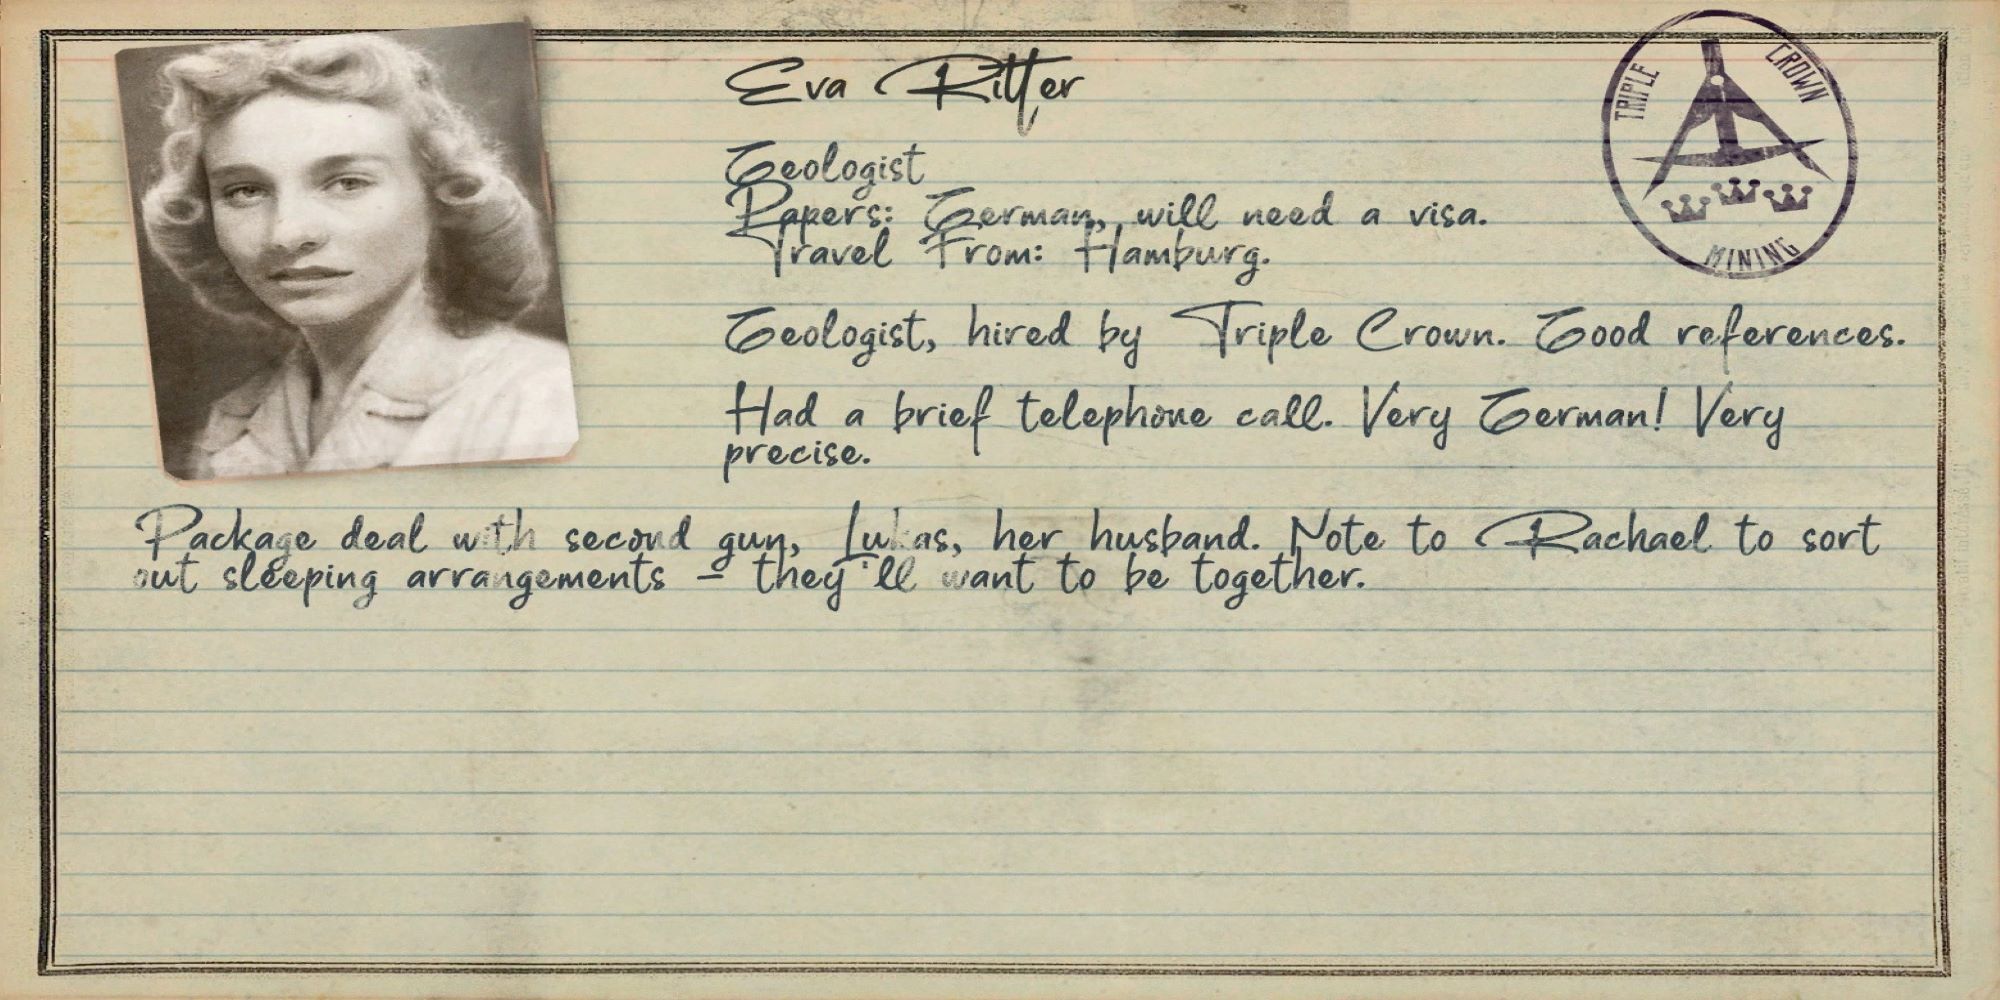 Eva Ritter
TRIPLE CROWN MINING
Geologist
Papers: German, will need a visa.
Travel From: Hamburg.
Geologist, hired by Triple Crown. Good references.
Had a brief telephone call. Very German! Very
precise.
Package deal with second gun, Lukas, her husband. Note to Rachael to sort
out sleeping arrangements – they'll want to be together.